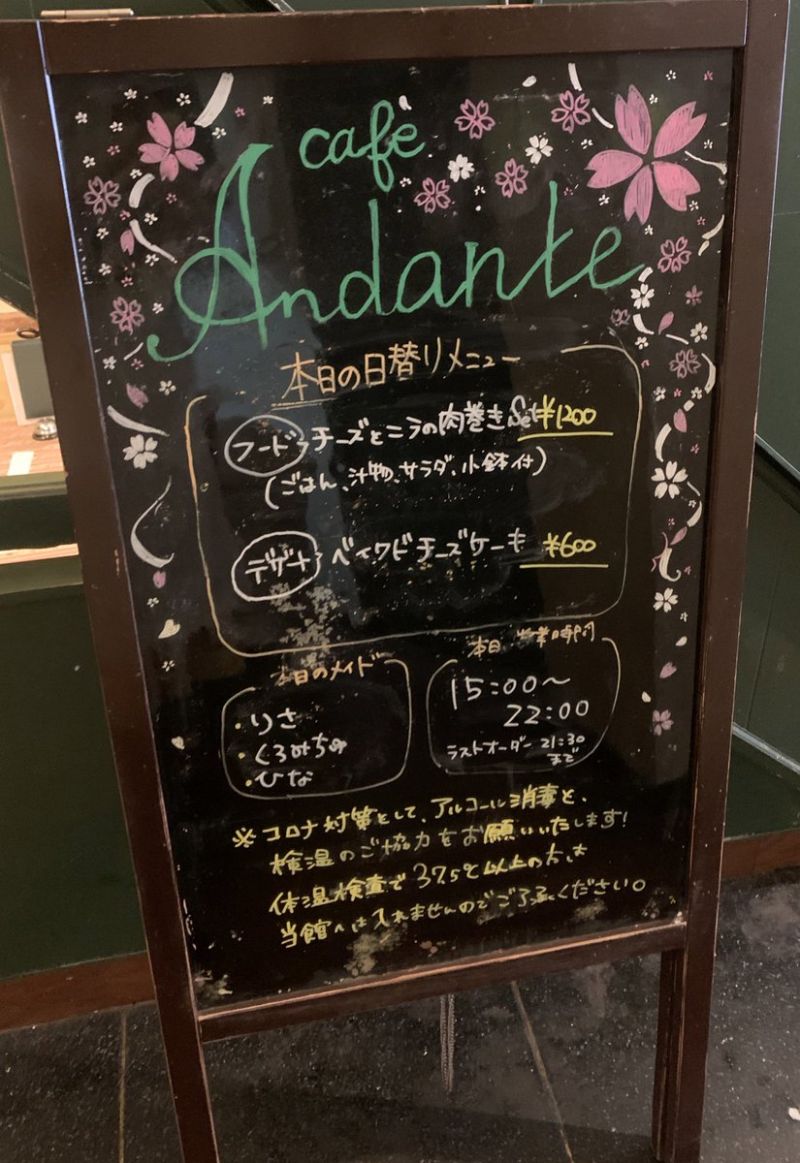 cafe
Andante
本日の日替りメニュー
フード チーズとニラの肉巻き Set ¥1200
(ごはん、汁物、サラダ、小鉢付)
デザート ベイクドチーズケーキ ¥600
本日のメイド
・りさ
・くろみちゅ
・ひな
本日 営業時間
15:00～
22:00
ラストオーダー 21:30
まで
※コロナ対策として、アルコール消毒と、
検温のご協力をお願いいたします!
体温検査で37.5℃以上の方は
当館へは入れませんのでご了承ください。